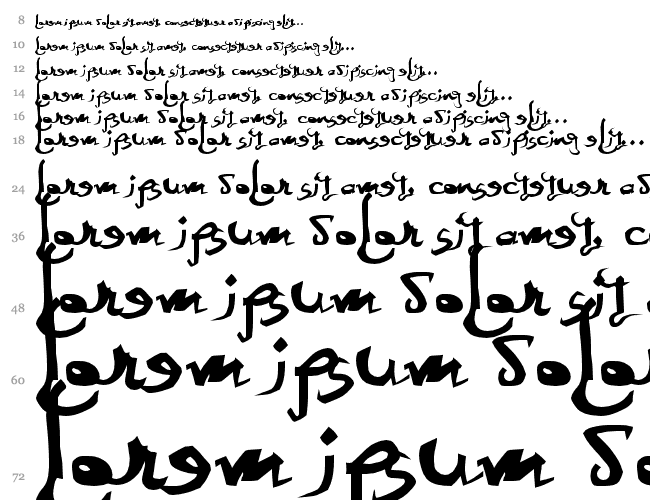 8 Lorem ipsum dolor sit amet, consectetuer adipiscing elit...
10 Lorem ipsum dolor sit amet, consectetuer adipiscing elit...
12 Lorem ipsum dolor sit amet, consectetuer adipiscing elit...
14 Lorem ipsum dolor sit amet, consectetuer adipiscing elit...
16 Lorem ipsum dolor sit amet, consectetuer adipiscing elit...
18 Lorem ipsum dolor sit amet, consectetuer adipiscing elit...
24 Lorem ipsum dolor sit amet, consectetuer ad
36 Lorem ipsum dolor sit amet, c
48 Lorem ipsum dolor sit
60 Lorem ipsum dolo
72 Lorem ipsum do